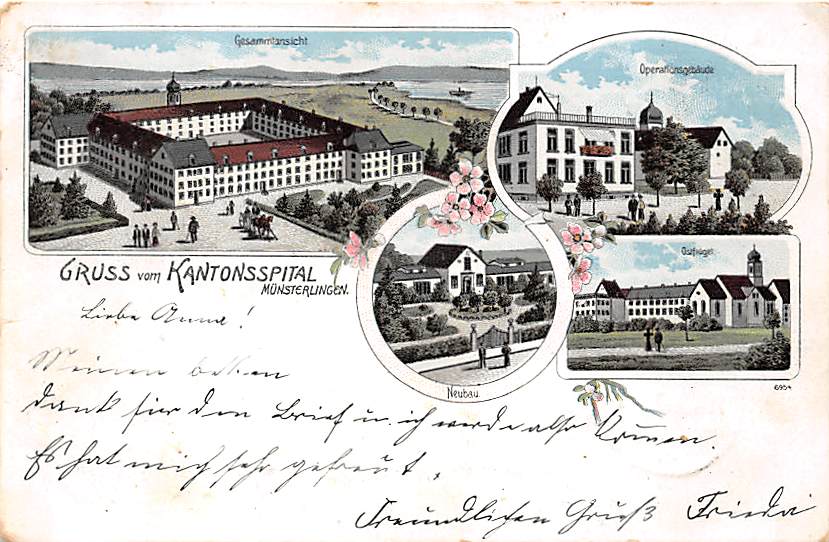 Gesammtansicht
Operationsgebäude
GRUSS vom KANTONSSPITAL
MÜNSTERLINGEN.
Ostflügel
Neubau.
6954
Liebe Anna!
Meinen besten
dank für den Brief u. ich werde also kommen.
Es hat mich sehr gefreut.
Freundlichen Gruß Frieda